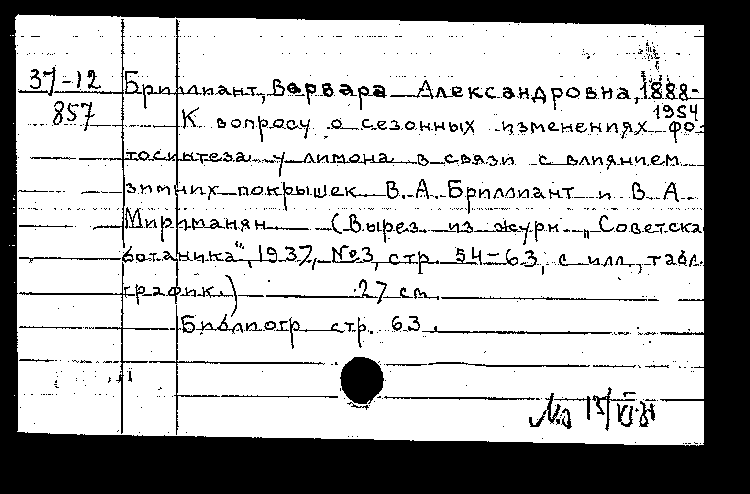 37-12 Бриллиант, Варвара Александровна, 1888-
857 1954
К вопросу о сезонных изменениях фо-
тосинтеза у лимона в связи с влиянием
зимних покрышек В. А. Бриллиант и В. А.
Мириманян (Вырез. из журн. „Советска
ботаника", 1937, №3, стр. 54-63, с илл., табл.
график.) 27 см.
Библиогр. стр. 63.